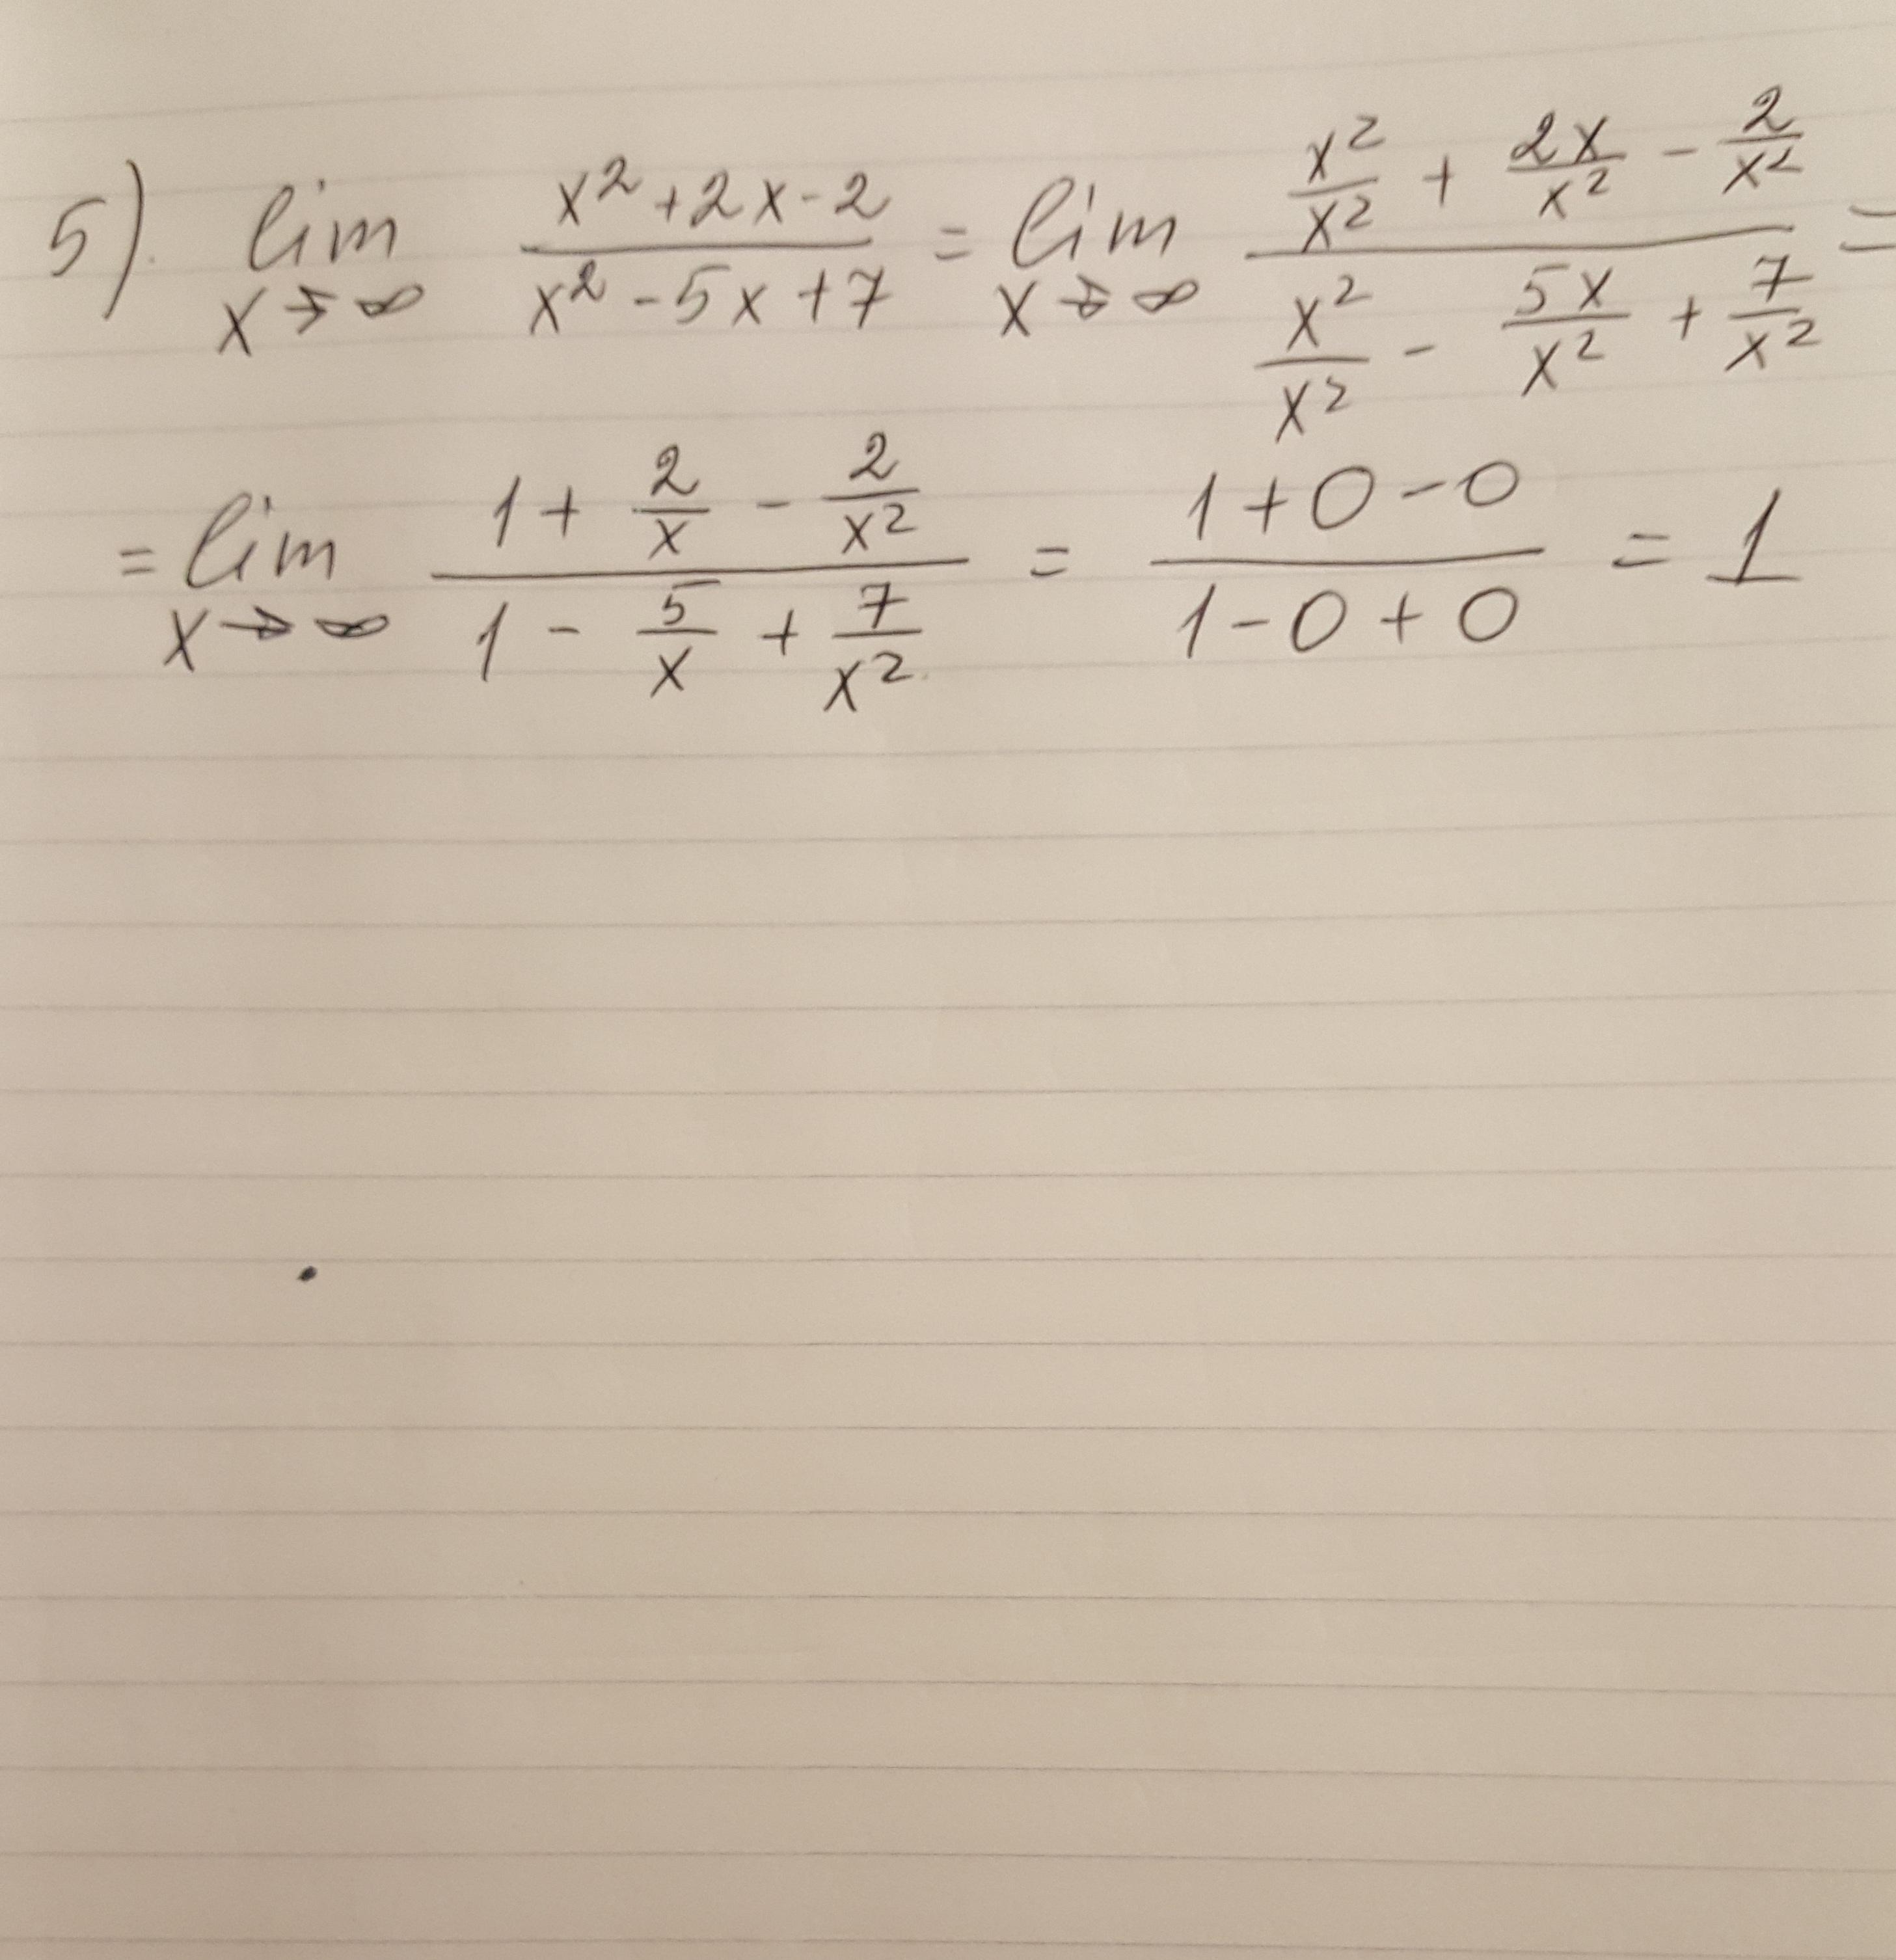 5). lim x→∞ (x²+2x-2)/(x²-5x+7) = lim x→∞ (x²/x² + 2x/x² - 2/x²)/(x²/x² - 5x/x² + 7/x²) =
= lim x→∞ (1 + 2/x - 2/x²)/(1 - 5/x + 7/x²) = (1+0-0)/(1-0+0) = 1